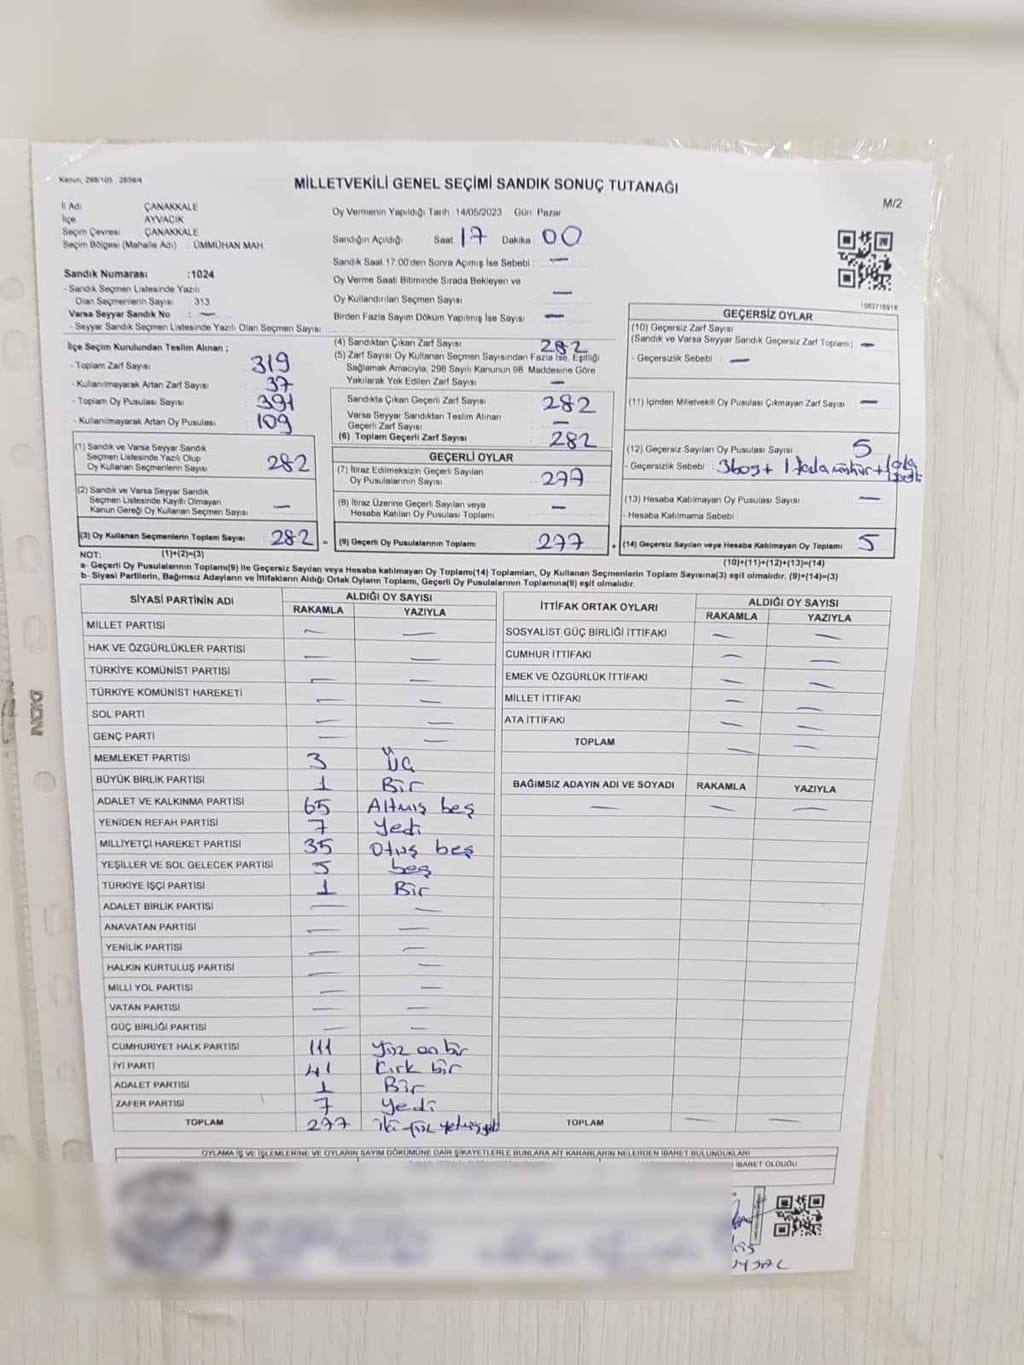 Kanun, 298/105 , 2839/4
MİLLETVEKİLİ GENEL SEÇİMİ SANDIK SONUÇ TUTANAĞI
M/2
İl Adı ÇANAKKALE
İlçe AYVACIK
Seçim Çevresi ÇANAKKALE
Seçim Bölgesi (Mahalle Adı) : ÜMMÜHAN MAH
Sandık Numarası :1024
- Sandık Seçmen Listesinde Yazılı
Olan Seçmenlerin Sayısı : 313
Varsa Seyyar Sandık No : —
- Seyyar Sandık Seçmen Listesinde Yazılı Olan Seçmen Sayısı :
Oy Vermenin Yapıldığı Tarih 14/05/2023 Gün: Pazar
Sandığın Açıldığı Saat 17 Dakika 00
Sandık Saat 17:00'den Sonra Açımış İse Sebebi : —
Oy Verme Saati Bitiminde Sırada Bekleyen ve
Oy Kullandırılan Seçmen Sayısı —
Birden Fazla Sayım Döküm Yapılmış İse Sayısı —
1083716918
İlçe Seçim Kurulundan Teslim Alınan ;
- Toplam Zarf Sayısı 319
- Kullanılmayarak Artan Zarf Sayısı 37
- Toplam Oy Pusulası Sayısı 391
- Kullanılmayarak Artan Oy Pusulası 109
(1) Sandık ve Varsa Seyyar Sandık
Seçmen Listesinde Yazılı Olup
Oy Kullanan Seçmenlerin Sayısı 282
(2) Sandık ve Varsa Seyyar Sandık
Seçmen Listesinde Kayıtlı Olmayan
Kanun Gereği Oy Kullanan Seçmen Sayısı —
(3) Oy Kullanan Seçmenlerin Toplam Sayısı 282 =
(4) Sandıktan Çıkan Zarf Sayısı 282
(5) Zarf Sayısı Oy Kullanan Seçmen Sayısından Fazla İse, Eşitliği
Sağlamak Amacıyla, 298 Sayılı Kanunun 98. Maddesine Göre
Yakılarak Yok Edilen Zarf Sayısı —
Sandıkta Çıkan Geçerli Zarf Sayısı 282
Varsa Seyyar Sandıktan Teslim Alınan
Geçerli Zarf Sayısı : —
(6) Toplam Geçerli Zarf Sayısı 282
GEÇERLİ OYLAR
(7) İtiraz Edilmeksizin Geçerli Sayılan
Oy Pusulalarının Sayısı 277
(8) İtiraz Üzerine Geçerli Sayılan veya
Hesaba Katılan Oy Pusulası Toplamı —
(9) Geçerli Oy Pusulalarının Toplamı 277 +
GEÇERSİZ OYLAR
(10) Geçersiz Zarf Sayısı
(Sandık ve Varsa Seyyar Sandık Geçersiz Zarf Toplamı) —
- Geçersizlik Sebebi : —
(11) İçinden Milletvekili Oy Pusulası Çıkmayan Zarf Sayısı —
(12) Geçersiz Sayılan Oy Pusulası Sayısı 5
- Geçersizlik Sebebi : 3 boş + 1 fazla mühür +
(13) Hesaba Katılmayan Oy Pusulası Sayısı —
- Hesaba Katılmama Sebebi :
(14) Geçersiz Sayılan veya Hesaba Katılmayan Oy Toplamı 5
NOT: (1)+(2)=(3)
(10)+(11)+(12)+(13)=(14)
a- Geçerli Oy Pusulalarının Toplamı(9) ile Geçersiz Sayılan veya Hesaba katılmayan Oy Toplamı(14) Toplamları, Oy Kullanan Seçmenlerin Toplam Sayısına(3) eşit olmalıdır. (9)+(14)=(3)
b- Siyasi Partilerin, Bağımsız Adayların ve İttifakların Aldığı Ortak Oyların Toplamı, Geçerli Oy Pusulalarının Toplamına(9) eşit olmalıdır.
SİYASİ PARTİNİN ADI ALDIĞI OY SAYISI
RAKAMLA YAZIYLA
MİLLET PARTİSİ — —
HAK VE ÖZGÜRLÜKLER PARTİSİ — —
TÜRKİYE KOMÜNİST PARTİSİ — —
TÜRKİYE KOMÜNİST HAREKETİ — —
SOL PARTİ — —
GENÇ PARTİ — —
MEMLEKET PARTİSİ 3 Üç
BÜYÜK BİRLİK PARTİSİ 1 Bir
ADALET VE KALKINMA PARTİSİ 65 Altmış beş
YENİDEN REFAH PARTİSİ 7 Yedi
MİLLİYETÇİ HAREKET PARTİSİ 35 Otuz beş
YEŞİLLER VE SOL GELECEK PARTİSİ 5 beş
TÜRKİYE İŞÇİ PARTİSİ 1 Bir
ADALET BİRLİK PARTİSİ — —
ANAVATAN PARTİSİ — —
YENİLİK PARTİSİ — —
HALKIN KURTULUŞ PARTİSİ — —
MİLLİ YOL PARTİSİ — —
VATAN PARTİSİ — —
GÜÇ BİRLİĞİ PARTİSİ — —
CUMHURİYET HALK PARTİSİ 111 Yüz on bir
İYİ PARTİ 41 Kırk bir
ADALET PARTİSİ 1 Bir
ZAFER PARTİSİ 7 Yedi
TOPLAM 277 iki yüz yetmiş yedi
İTTİFAK ORTAK OYLARI ALDIĞI OY SAYISI
RAKAMLA YAZIYLA
SOSYALİST GÜÇ BİRLİĞİ İTTİFAKI — —
CUMHUR İTTİFAKI — —
EMEK VE ÖZGÜRLÜK İTTİFAKI — —
MİLLET İTTİFAKI — —
ATA İTTİFAKI — —
TOPLAM — —
BAĞIMSIZ ADAYIN ADI VE SOYADI RAKAMLA YAZIYLA
— — —
TOPLAM — —
OYLAMA İŞ VE İŞLEMLERİNE VE OYLARIN SAYIM DÖKÜMÜNE DAİR ŞİKAYETLERLE BUNLARA AİT KARARLARIN NELERDEN İBARET BULUNDUKLARI
İBARET OLDUĞU
DİXON